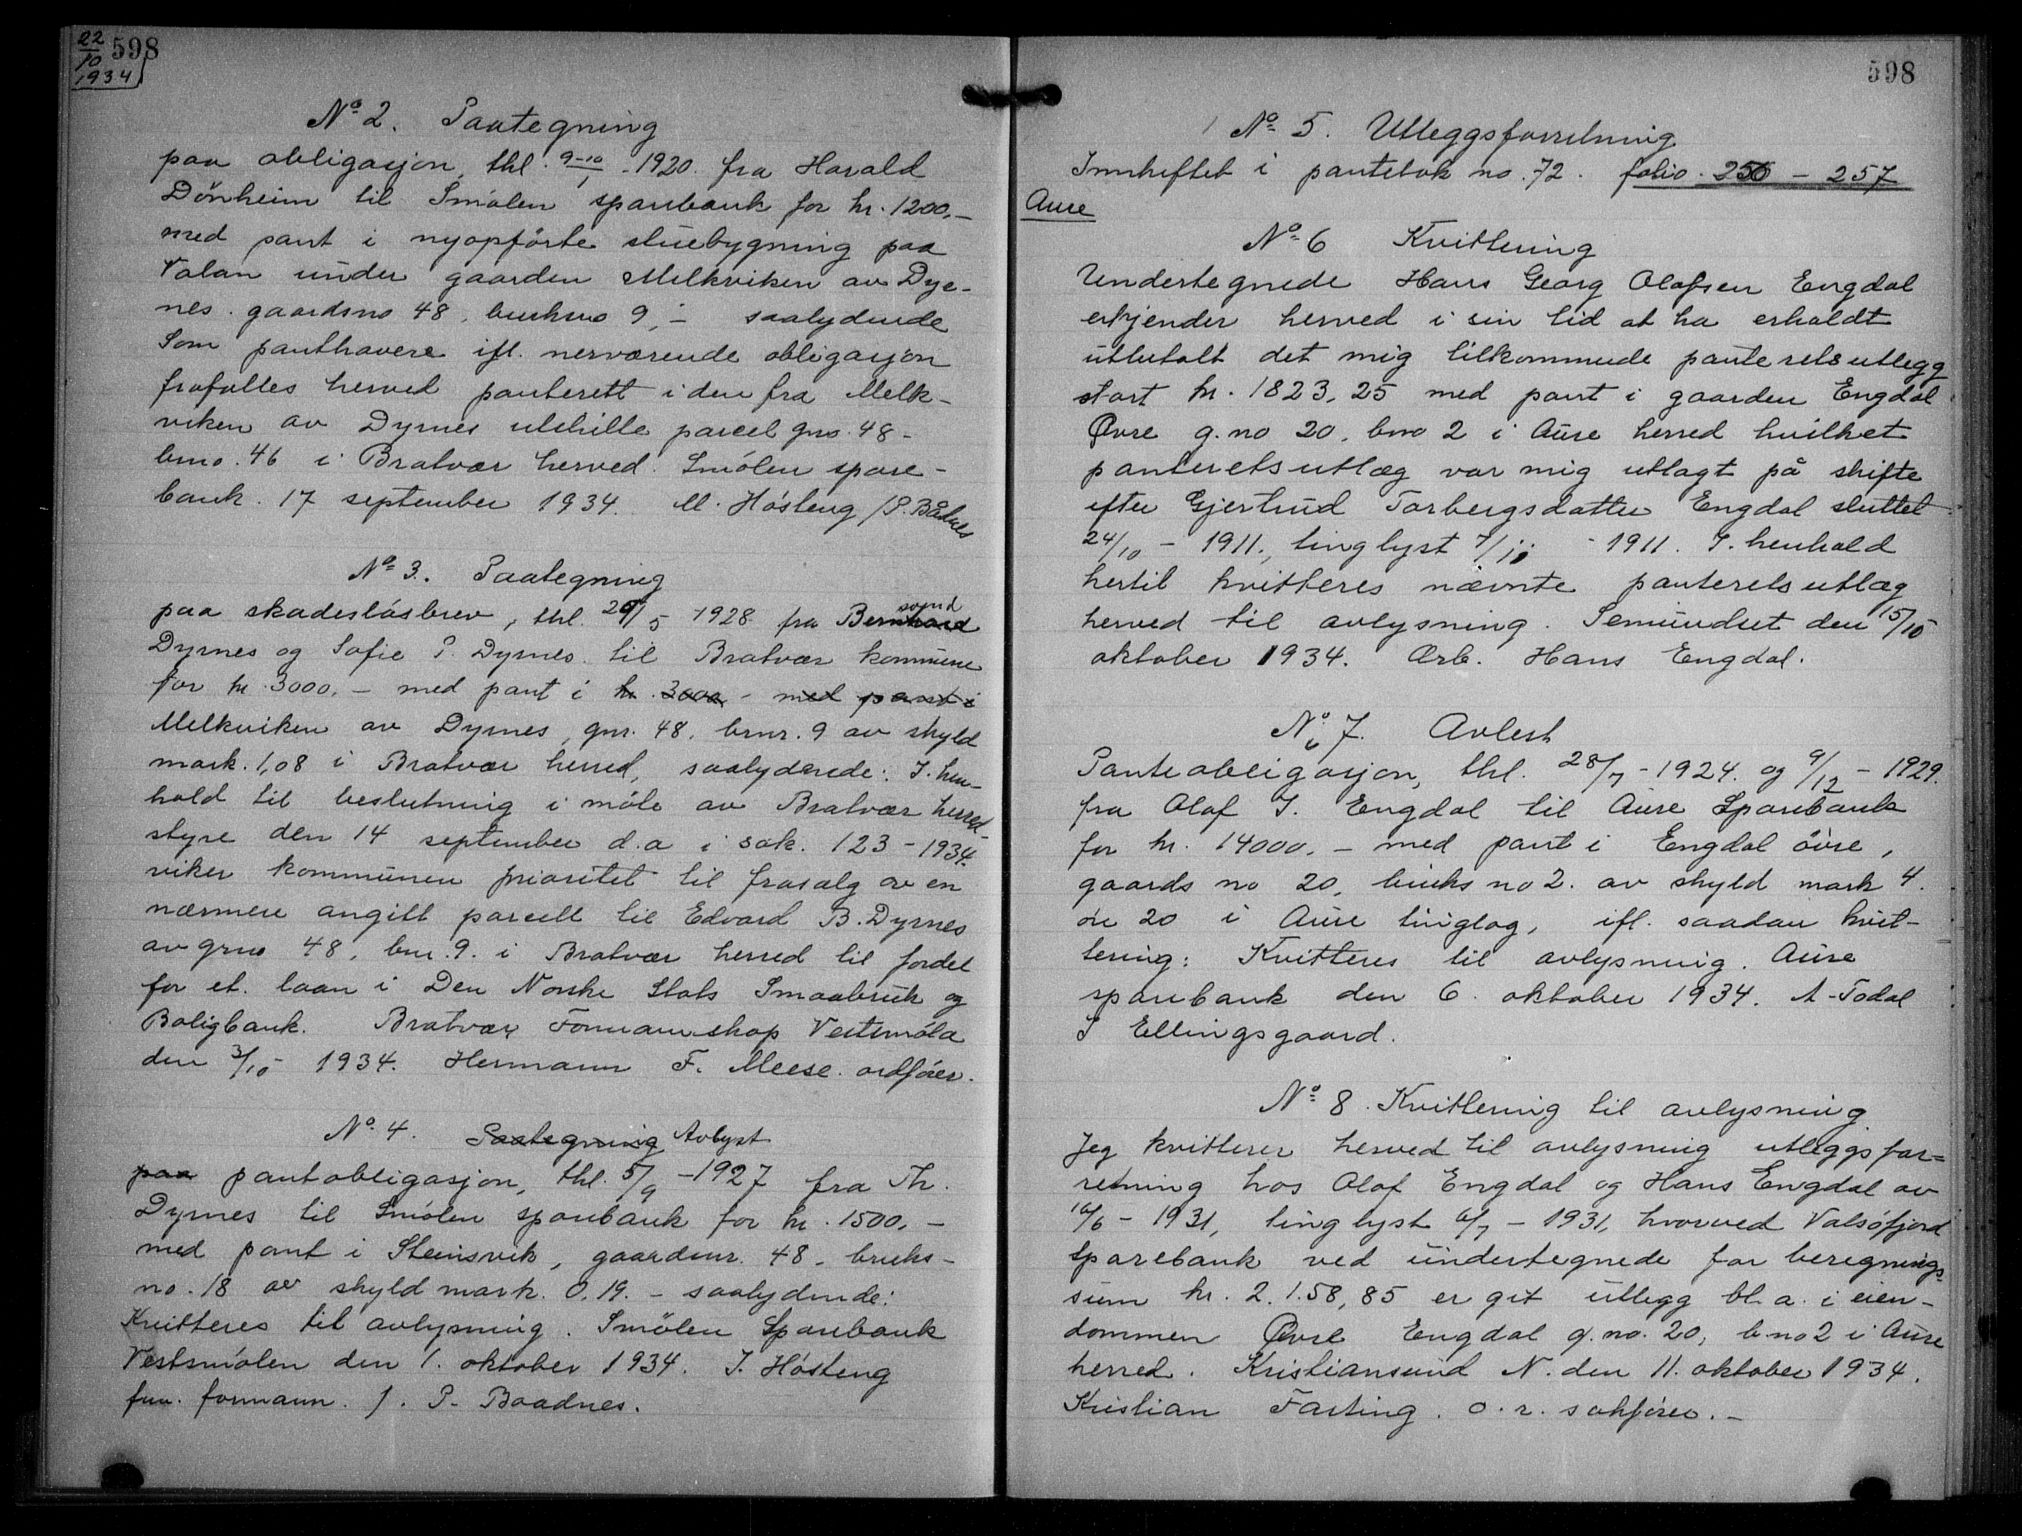 22/10 1934 598
No 2. Paategning
paa obligasjon, thl. 9-10/1 - 1920. fra Harald
Dönheim til Smölen sparebank for kr. 1200,-
med pant i nyopförte stuebygning paa
Valan under gaarden Melkviken av Dyr-
nes. gaardsno 48, bruksno 9, - saalydende
Som panthavere ifl. nerværende obligasjon
frafalles herved panterett i den fra Melk-
viken av Dyrnes utskilte parcel gno. 48 -
bno. 46 i Bratvær herred. Smölen spare-
bank. 17 september 1934. M. Hösteng / P. Bådnes
No 3. Paategning
paa skadeslösbrev, thl. 29/5 1928 fra Berntsand
Dyrnes og Sofie P. Dyrnes til Bratvær kommune
for kr. 3000, - med pant i kr. 3000, - med pant i
Melkviken av Dyrnes, gnr. 48, brnr. 9 av skyld
mark. 1,08 i Bratvær herred, saalydende: I. hen-
hold til beslutning i möte av Bratvær herred-
styre den 14 september d.a i sak. 123 - 1934.
viker kommunen prioritet til frasalg av en
nærmere angitt parcell til Edvard B. Dyrnes
av grno 48, bnr. 9. i Bratvær herred til fordel
for et. laan i Den Norske Stats Smaabruk og
Boligbank. Bratvær Formannskap Vestsmöla
den 3/10 - 1934. Hermann F. Meese. ordförer.
No 4. Paategning Avlyst
paa pantobligasjon, thl. 5/9 - 1927 fra Th.
Dyrnes til Smölen sparebank for kr. 1500, -
med pant i Steinsvik, gaardsnr. 48 - bruks-
no. 18 av skyld mark. 0,19. - saalydende:
Kvitteres til avlysning. Smölen Sparebank
Vestsmölen den 1. oktober 1934. I. Hösteng
fun. formann. /. P. Baadnes.
598
No 5. Utleggsforretning
Innheftet i pantebok no. 72. folio. 256 - 257
Aure
No 6 Kvittering
Undertegnede Hans Georg Olafsen Engdal
erkjender herved i sin tid at ha erholdt
utbetalt det mig tilkommende panteretsutlegg
stort kr. 1823,25 med pant i gaarden Engdal
Øvre g.no 20, bno 2 i Aure herred hvilket
panteretsutlæg var mig utlagt på skifte
efter Gjertrud Torbergsdatter Engdal sluttet
24/10 - 1911, tinglyst 7/11 - 1911. I. henhold
hertil kvitteres nævnte panteretsutlæg
herved til avlysning. Semundset den 15/10
oktober 1934. Ærb. Hans Engdal.
No 7. Avlest
Panteobligasjon, thl. 28/7 - 1924. og 9/12 - 1929.
fra Olaf J. Engdal til Aure Sparebank
for kr. 14000. - med pant i Engdal övre,
gaards no 20, bruks no 2. av skyld mark 4.
öre 20 i Aure tinglag, ifl. saadan kvit-
tering: Kvitteres til avlysning. Aure
sparebank den 6. oktober 1934. A. Todal
S Ellingsgaard.
No 8. Kvittering til avlysning
Jeg kvitterer herved til avlysning utleggsfor=
retning hos Olaf Engdal og Hans Engdal av
16/6 - 1931, tinglyst 6/7 - 1931, hvorved Valsöfjord
Sparebank ved undertegnede for beregnings-
sum kr. 2.158,85 er git utlegg bl.a. i eien-
dommen Øvre Engdal g.no. 20, b.no 2 i Aure
herred. Kristiansund N. den 11. oktober 1934.
Kristian Fasting. o.r. sakförer. -